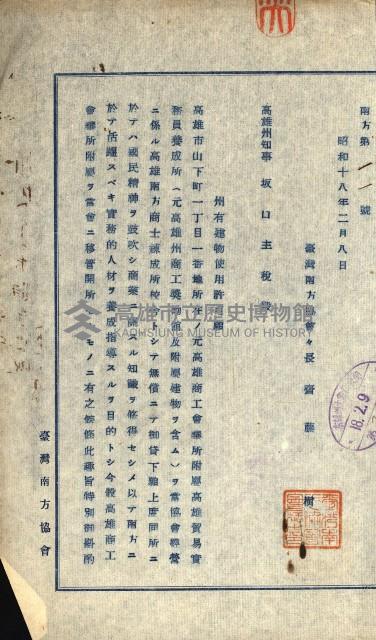 南方第一一號
昭和十八年二月八日
臺灣南方協會々長 齋藤 樹
高雄州知事 坂口主税殿
州有建物使用許可願
高雄市山下町一丁目一番地所在ノ元高雄商工會議所附屬高雄貿易實
務員養成所(元高雄州商工奬勵館及附屬建物ヲ含ム)ヲ當協會經營
ニ係ル高雄南方商士練成所校舍トシテ無償ニテ御貸下賜上度同所ニ
於テハ國民精神ヲ鼓吹シ商業ニ關スル知識ヲ修得セシメ以テ南方ニ
於テ活躍スベキ實務的人材ヲ養成指導スルヲ目的トシ今般高雄商工
會議所附屬ヲ當會ニ移管開所 モノニ有之候條此趣旨特別御斟酌
臺灣南方協會
高雄市立歷史博物館
KAOHSIUNG MUSEUM OF HISTORY
18.2.9